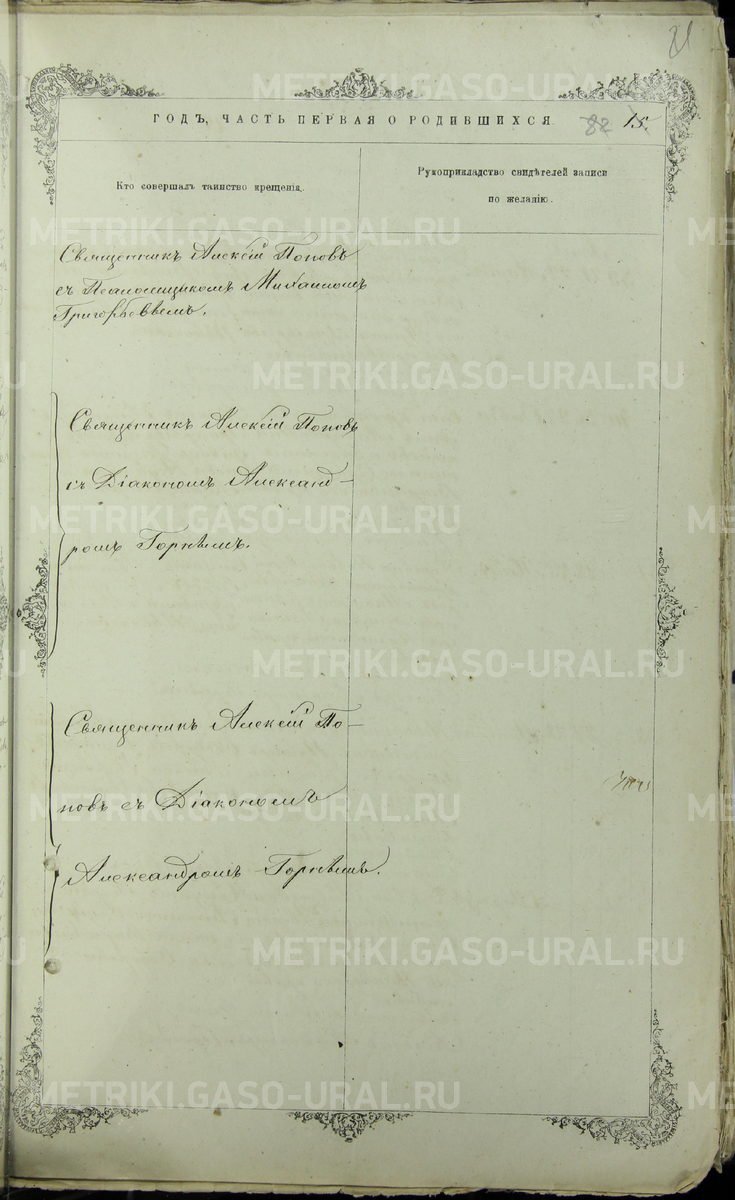 21
ГОДЪ, ЧАСТЬ ПЕРВАЯ О РОДИВШИХСЯ. 82 15.
Кто совершалъ таинство крещенія.
Рукоприкладство свидѣтелей записи
по желанію.
Священникъ Алексій Поповъ
съ Псаломщикомъ Михаиломъ
Григорьевымъ.
Священникъ Алексій Поповъ
съ Діакономъ Александ-
ромъ Горнымъ.
Священникъ Алексій По-
повъ съ Діакономъ
Александромъ Горнымъ.
METRIKI.GASO-URAL.RU